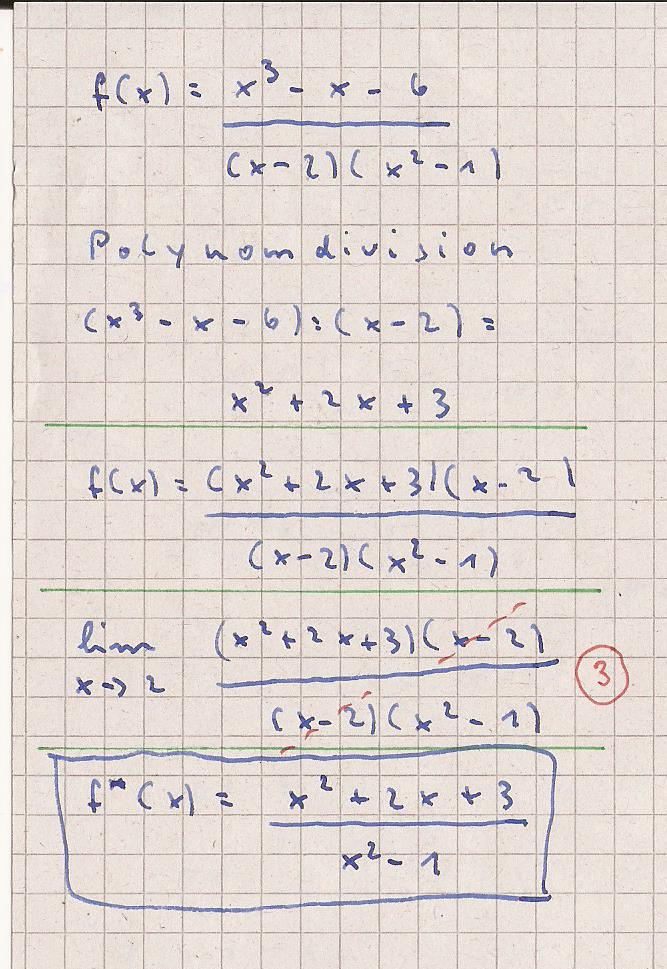 f(x) = x³ - x - 6
(x-2)(x²-1)
Polynomdivision
(x³ - x - 6):(x-2) =
x² + 2x + 3
f(x) = (x²+2x+3)(x-2)
(x-2)(x²-1)
lim (x²+2x+3)(x-2)
x→2 (x-2)(x²-1)
3
f*(x) = x² + 2x + 3
x² - 1